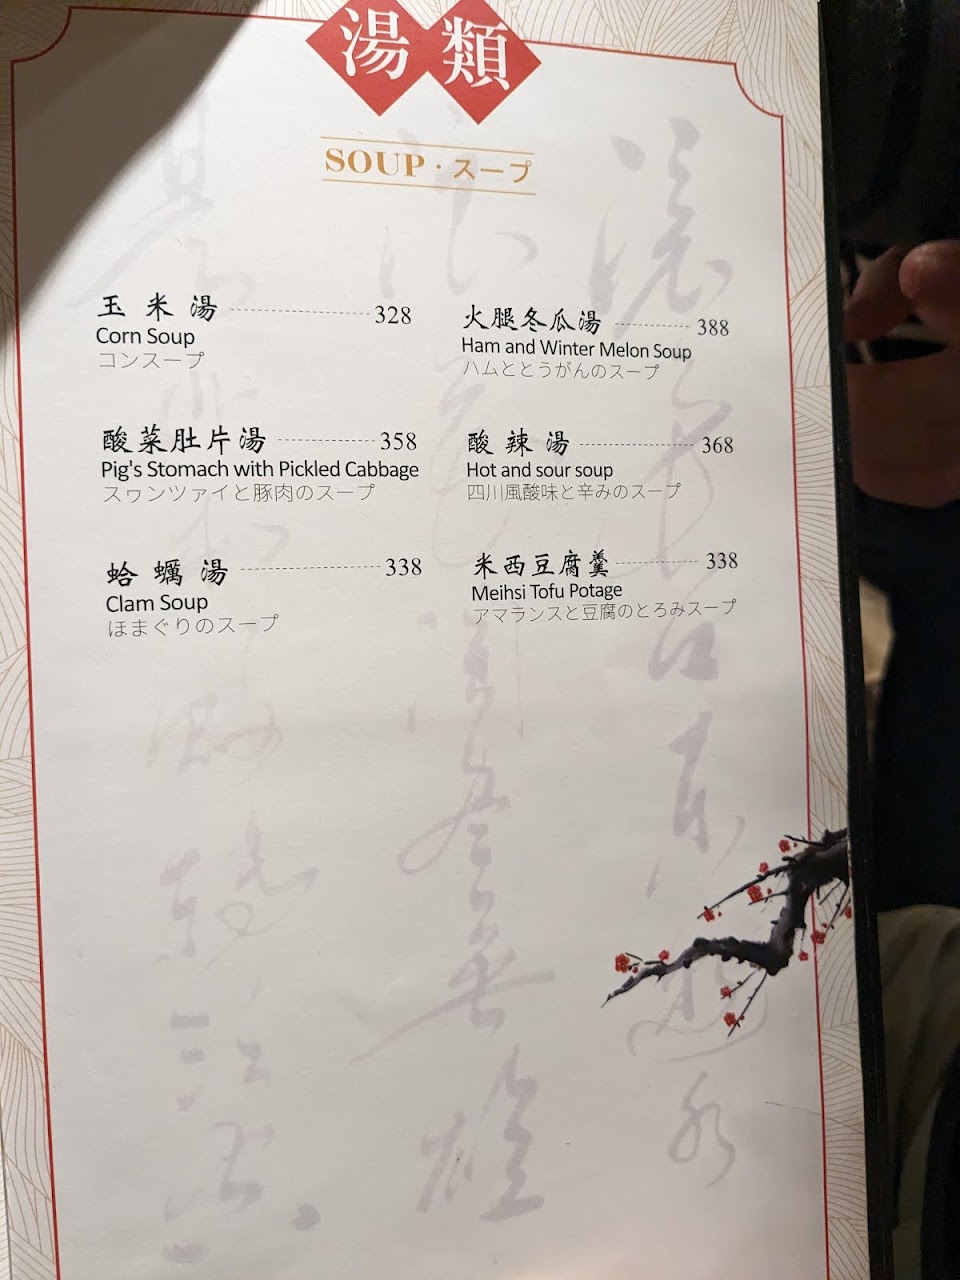 湯類
SOUP・スープ
玉米湯 328
Corn Soup
コンスープ
酸菜肚片湯 358
Pig's Stomach with Pickled Cabbage
スヮンツァイと豚肉のスープ
蛤蠣湯 338
Clam Soup
ほまぐりのスープ
火腿冬瓜湯 388
Ham and Winter Melon Soup
ハムととうがんのスープ
酸辣湯 368
Hot and sour soup
四川風酸味と辛みのスープ
米西豆腐羹 338
Meihsi Tofu Potage
アマランスと豆腐のとろみスープ